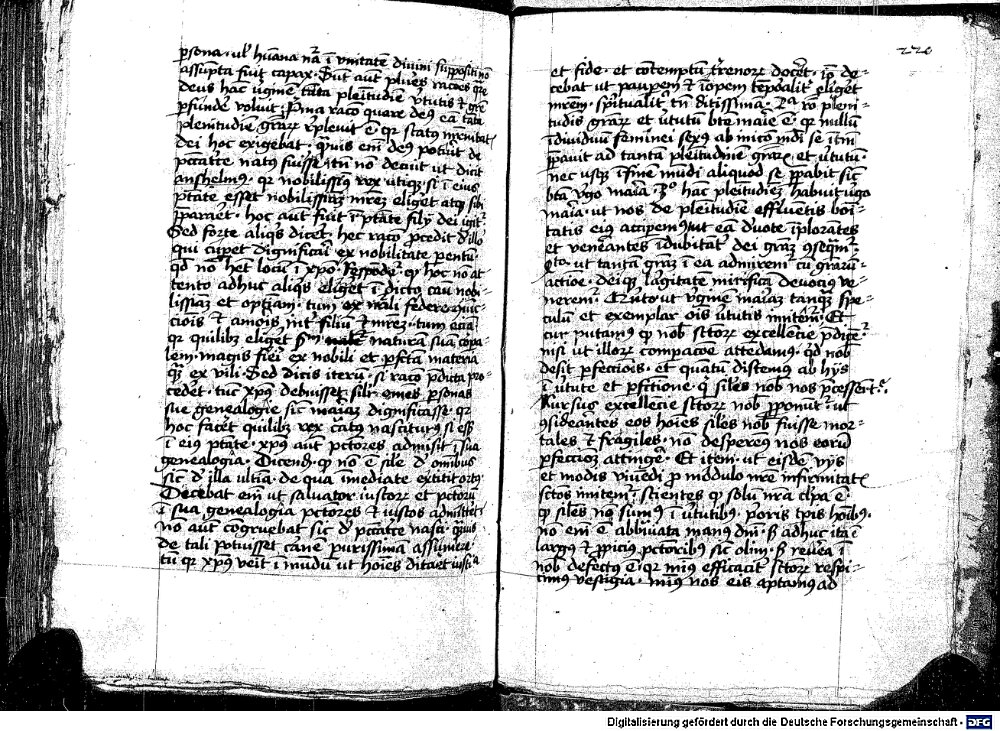 persona · ul' hūana nā ī vnitatē diuini suppositi nō
assūpta fuit capax · Sūt aūt plures raōes qre
deus hac ugīne tāta plenitudīe v̄tutis et grē
pfunde voluit · Pma raco quare deꝯ eā tāta
plenitudīe grāꝝ repleuit ē qꝫ statꝯ mrēnitatꝭ
dei hoc exigebat · quīs em̄ deꝯ potuit de
pctātce natꝯ fuisse tn̄ nō decuit ut dicit
anshelmꝯ · qr nobilissimꝯ rex utiqꝫ si ī eius
ptāte esset nobilissimā mrēz eligeret atqꝫ sibi
ppararet · hoc aūt fuit ī ptāte filij dei
Sed forte aliqs diceret · hec raco pcedit
qui cuperet dignificari ex nobilitate pentū ·
qd nō hēt locū ī xpo · Respondet qꝫ hoc nō at-
tento adhuc aliqs eligeret ī dicto cāu nobi-
lissimā et optimā · tum ex
ciōis et amoīs int filiū et mrēz · tum eciā
qr quilibꝫ eligeret naturā suā
lem magis fieri ex nobili et pfcta materia
quā ex vili · Sed dicis iterū · si raco pdicta pro-
cederet · tunc xpūs debuisset silr̄ omēs psonas
sue genealogie sic mariaꝫ dignificasse · qr
hoc faceret quilibꝫ rex nasciturꝯ si eēt
ī eiꝯ ptāte · xpūs aūt pctōres admisit ī sua
genealogia · Dicendꝫ qꝫ nō ē sile d omnibus
sic d illa ultīa · de qua īmediate extitit ortꝯ
Decebat em̄ ut saluator iustorꝫ et pctorꝫ
ī sua genealogia pctōres et iustos admitteret
nō aūt cōgruebat sic d pctātce nasci · quīuis
de tali potuisset carnē purissimā assumere
tū qr xpūs veīt ī mūdū ut hoīes ditaret
220
et fide · et cōtemptū trenorꝫ doceret · iō de-
cebat ut paupem̄ et īopem tēporalit eligeret
mrēm · spūalit tn̄ ditissimā · 2a rō pleni-
tudis grāꝝ et v̄tutū bte marie ē qꝫ nullū
īdiuiduū feminei sexꝯ ab inīcō mdi se
ppauit ad tantā plenitudinē grāꝝ et v̄tutū ·
nec usqꝫ ī finē mūdi aliquod se ppabit sic
btā v̄go maria · 3o hac plenitudīeꝫ habuit ugo
maria · ut nos de plenitudīe effluentis boni-
tatis eiꝯ accipemꝯ ut eā deuote īplorātes
et venerātes īdubitāt dei grāꝫ cōsequmr
4to · ut tantā grāꝫ ī ea admiremr cū grāru-
actioe · deiqꝫ largitatē mirificā deuociꝯ ve-
neremr · Quito ut vgīne mariaꝫ tanqꝫ spe-
culū et exemplar oīs v̄tutis imitemr · Et
cur putamꝯ qꝫ nob sctorꝫ excellencie pdicētr
nisi ut illorꝫ compacoe attēdamꝯ · qd nob
desit pfectiōis · et quātū distemꝯ ab hijs
ī v̄tute et pfectione · q siles nob nos pcesserūt ·
Rursus excellēcie sctorꝫ nob pponūtr · ut
cōsiderantes eos hoīes siles nob fuisse mor-
tales et fragiles · nō desperemꝯ nos eorū
pfeccioꝫ attīngere · Et item · ut eisdē vijs
et modis viuēdi p modulo nrē infirmitatꝭ
sctos imitemr · scientes qꝫ solū nrā clpa ē
qꝫ siles nō sumꝯ ī v̄tutibꝯ · poris tpis hoībꝯ ·
nō em̄ ē abbreuiata manꝯ dnī · sꝫ adhuc ita ē
largꝯ et ppiciꝯ pctōribꝯ sic olim · sꝫ reuera ī
nob defectꝯ ē · qr minꝯ efficacit sctorꝫ respi-
cimꝯ vestigia · minꝯ nos eis aptamꝯ ad
Digitalisierung gefördert durch die Deutsche Forschungsgemeinschaft - DFG